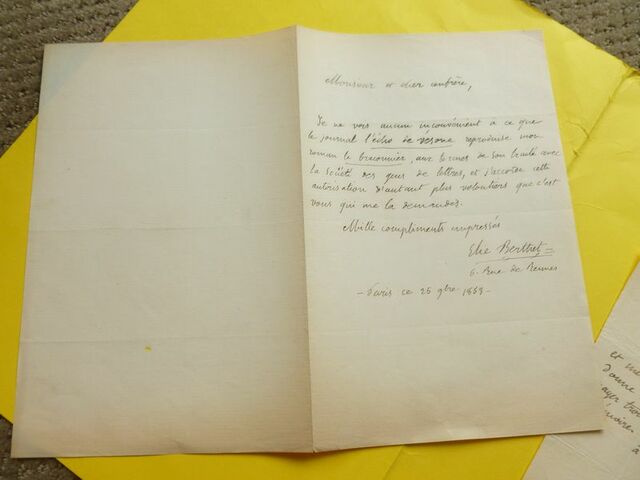 Monsieur et cher confrère,
Je ne vois aucun inconvénient à ce que
le journal l'écho de vésone reproduise mon
roman le braconnier, aux termes de son traité avec
la Société des gens de lettres, et j'accorde cette
autorisation d'autant plus volontiers que c'est
vous qui me la demandez.
Mille compliments empressés
Elie Berthet
6. Rue de Rennes
- Paris ce 25 9bre 1859 -
et me
donne
trou